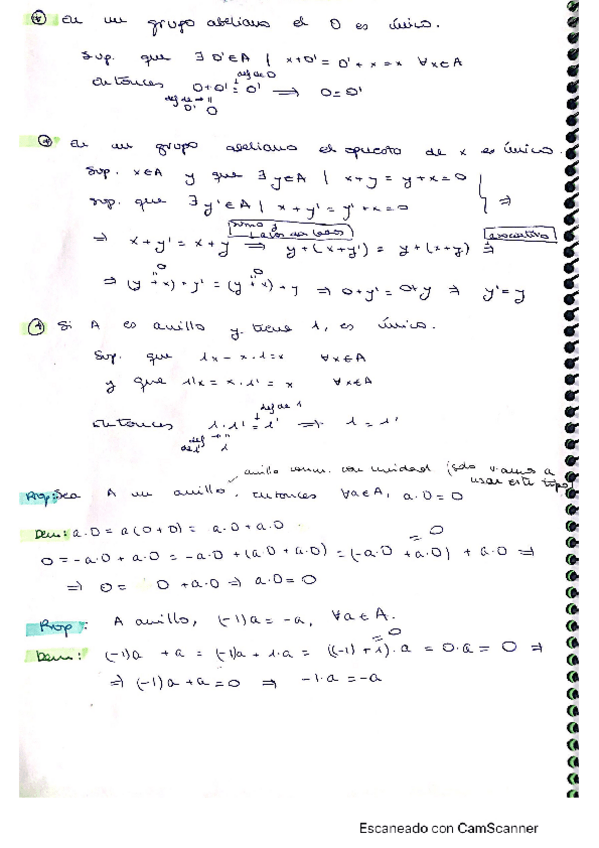 * En un grupo abeliano el 0 es único.
Sup. que ∃ 0'∈A | x+0' = 0'+x = x ∀x∈A
def de 0
entonces 0+0' = 0' ⟹ 0=0'
def de 0' → " 0
* En un grupo abeliano el opuesto de x es único.
Sup. x∈A y que ∃ y∈A | x+y = y+x = 0
sup. que ∃ y'∈A | x+y' = y'+x = 0 } ⟹
sumo y a los dos lados
asociativa
⟹ x+y' = x+y ⟹ y+(x+y') = y+(x+y) ⟹
0 0
⟹ (y+x)+y' = (y+x)+y ⟹ 0+y' = 0+y ⟹ y'=y
* Si A es anillo y tiene 1, es único.
Sup. que 1x = x·1 = x ∀x∈A
y que 1'x = x·1' = x ∀x∈A
def de 1
entonces 1·1' = 1' ⟹ 1 = 1'
def de 1' → " 1
anillo conm. con unidad (solo vamos a usar este tipo)
Prop: Sea A un anillo, entonces ∀a∈A, a·0=0
Dem: a·0 = a(0+0) = a·0+a·0
= 0
0 = -a·0 + a·0 = -a·0 + (a·0 + a·0) = (-a·0 + a·0) + a·0 ⟹
⟹ 0 = 0 + a·0 ⟹ a·0 = 0
Prop: A anillo, (-1)a = -a, ∀a∈A.
= 0
Dem: (-1)a + a = (-1)a + 1·a = ((-1)+1)·a = 0·a = 0 ⟹
⟹ (-1)a + a = 0 ⟹ -1·a = -a
Escaneado con CamScanner